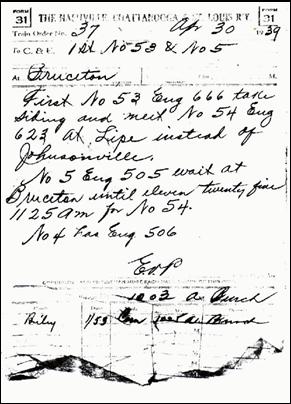 FORM 31 THE NASHVILLE, CHATTANOOGA & ST. LOUIS R'Y FORM 31
Train Order No. 37 Apr 30 1939
To C. & E. 1st No 53 & No 5
At Bruceton M.
First No 53 Eng 666 take
siding and meet No 54 Eng
623 At Lipe instead of
Johnsonville.
No 5 Eng 505 wait at
Bruceton until eleven twenty five
1125 am for No 54.
No 4 has Eng 506
EAP
a
Riley 1/53 Com a